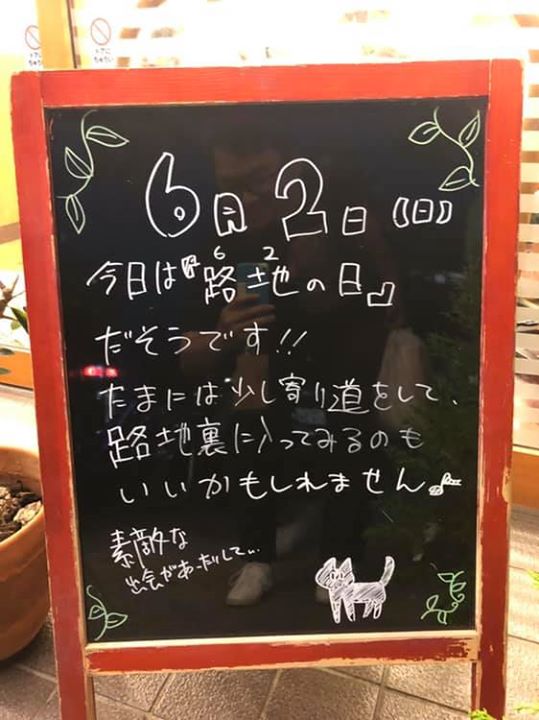 6月2日(日)
6 2
今日は『路地の日』
だそうです!!
たまには少し寄り道をして、
路地裏に入ってみるのも
いいかもしれません♪
素敵な
出会があったりして…